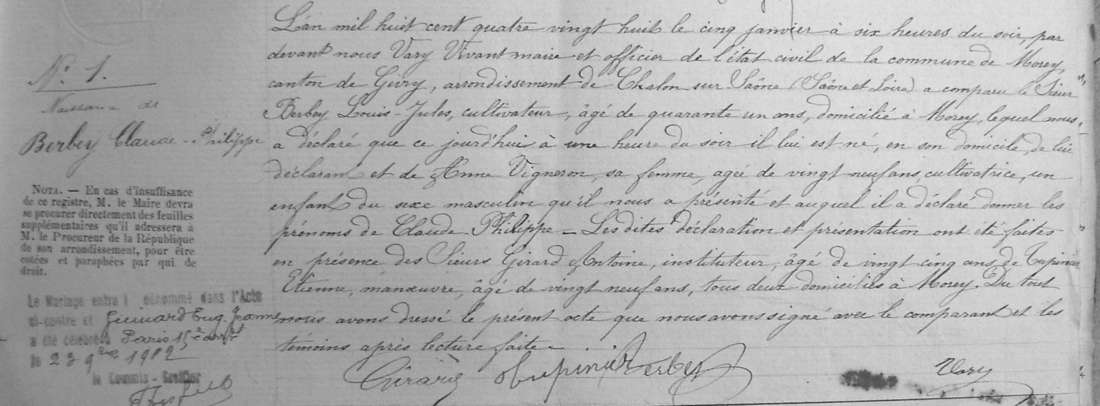 N° 1.
Naissance de
Berbey Claude-Philippe
NOTA. — En cas d'insuffisance
de ce registre, M. le Maire devra
se procurer directement des feuilles
supplémentaires qu'il adressera à
M. le Procureur de la République
de son arrondissement, pour être
cotées et paraphées par qui de
droit.
Le Mariage entre l dénommé dans l'Acte
ci-contre et Guinard Eug Jeanne
a été célébré à Paris 15e arrt
le 23 9bre 1912
le Commis-Greffier
L'an mil huit cent quatre vingt huit le cinq janvier à six heures du soir, par
devant nous Vary Vivant maire et officier de l'état civil de la commune de Morey,
canton de Givry, arrondissement de Chalon sur Saône (Saône et Loire) a comparu le Sieur
Berbey Louis-Jules, cultivateur, âgé de quarante un ans, domicilié à Morey, lequel nous
a déclaré que ce jourd'hui à une heure du soir il lui est né, en son domicile, de lui
déclarant et de Anne Vigneron, sa femme, agée de vingt neuf ans, cultivatrice, un
enfant du sexe masculin qu'il nous a présenté et auquel il a déclaré donner les
prénoms de Claude Philippe — Les dites déclaration et présentation ont été faites
en présence des Sieurs Girard Antoine, instituteur, âgé de vingt cinq ans, de Tupinier
Etienne, manœuvre, âgé de vingt neuf ans, tous deux domiciliés à Morey. Du tout
nous avons dressé le présent acte que nous avons signé avec le comparant et les
témoins après lecture faite —
Girard Tupinier Berbey Vary